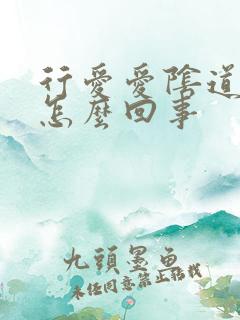 行愛愛陰道
怎麼回事
九頭墨魚
未經同意禁止轉載